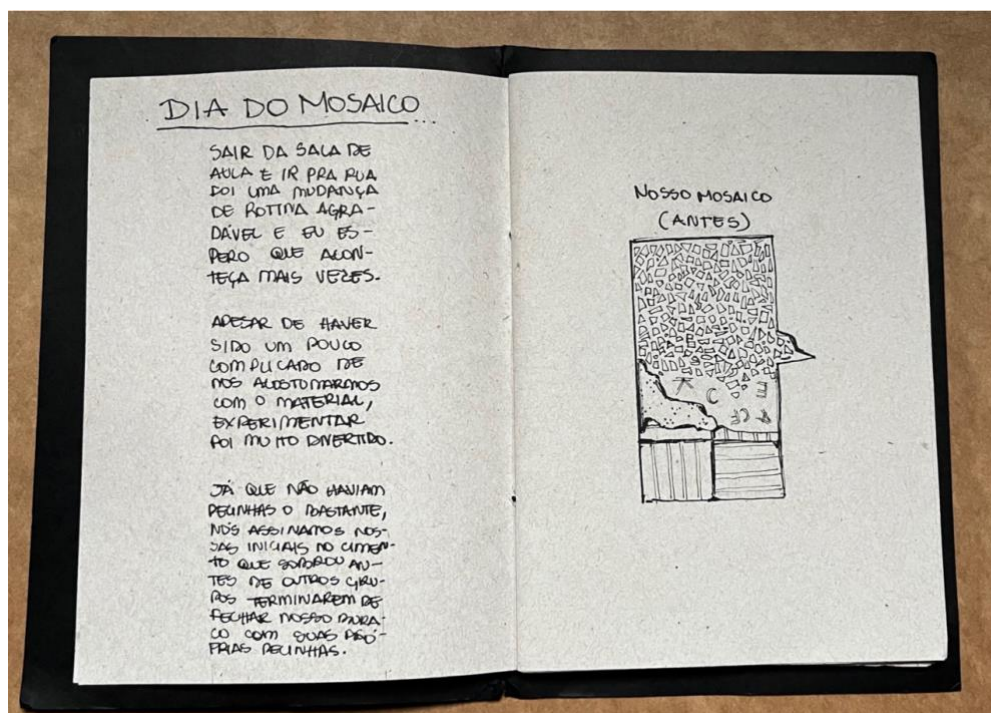 DIA DO MOSAICO...
SAIR DA SALA DE
AULA E IR PRA RUA
FOI UMA MUDANÇA
DE ROTINA AGRA-
DÁVEL E EU ES-
PERO QUE ACON-
TEÇA MAIS VEZES.
APESAR DE HAVER
SIDO UM POUCO
COMPLICADO DE
NOS ACOSTUMARMOS
COM O MATERIAL,
EXPERIMENTAR
FOI MUITO DIVERTIDO.
JÁ QUE NÃO HAVIAM
PECINHAS O BASTANTE,
NÓS ASSINAMOS NOS-
SAS INICIAIS NO CIMEN-
TO QUE SOBROU AN-
TES DE OUTROS GRU-
POS TERMINAREM DE
FECHAR NOSSO BURA-
CO COM SUAS PRÓ-
PRIAS PECINHAS.
NOSSO MOSAICO
(ANTES)
K C E